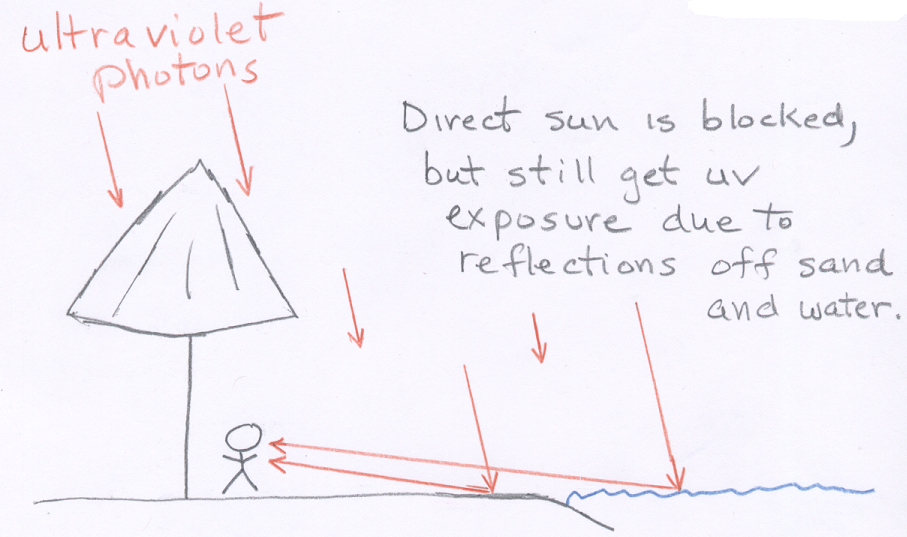 ultraviolet
photons
Direct sun is blocked,
but still get uv
exposure due to
reflections off sand
and water.